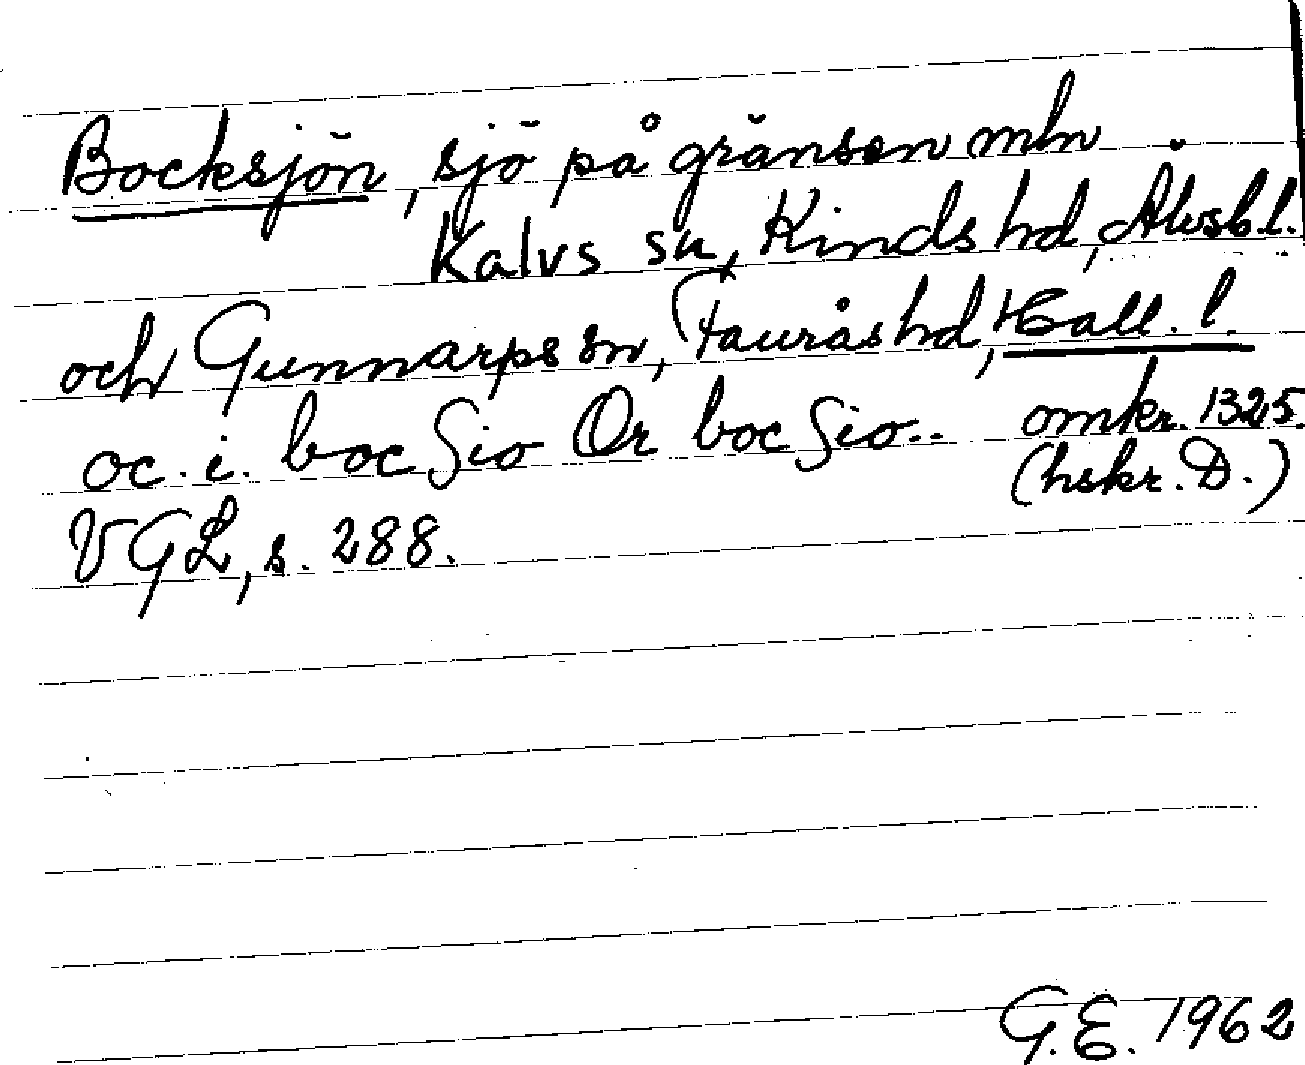 Bocksjön, sjö på gränsen mln
Kalvs sn, Kinds hd, Älvsb. l.
och Gunnarps sn, Faurås hd, Hall. l.
oc. i. boc sio Or boc sio.. omkr. 1325.
(hskr. D.)
VGL, s. 288.
G.E. 1962